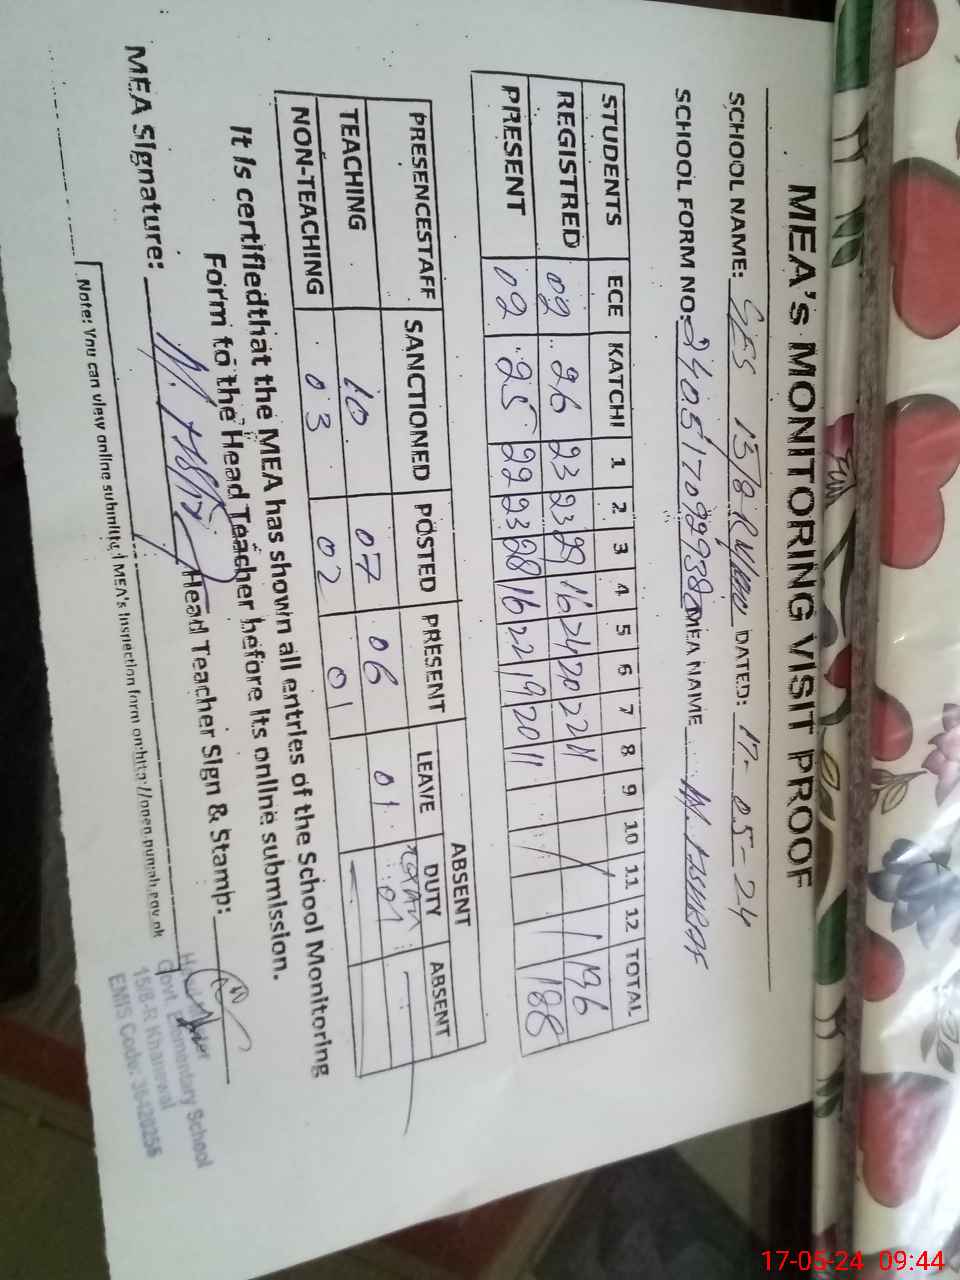 MEA's MONITORING VISIT PROOF
SCHOOL NAME: GES 15/8-R DATED: 17-05-24
SCHOOL FORM NO: MEA NAME M. ASHRAF
STUDENTS ECE KATCHI 1 2 3 4 5 6 7 8 9 10 11 12 TOTAL
REGISTRED 02 26 23 23 29 16 24 20 22 11 196
PRESENT 02 25 22 23 28 16 22 19 20 11 188
PRESENCESTAFF SANCTIONED POSTED PRESENT ABSENT
LEAVE DUTY ABSENT
TEACHING 10 07 06 01
NON-TEACHING 03 02 01
It is certifiedthat the MEA has shown all entries of the School Monitoring
Form to the Head Teacher before its online submission.
MEA Signature: Head Teacher Sign & Stamp:
Govt Elementary School
15/8-R Khanewal
EMIS Code:
Note: You can view online submitted MEA's Inspection form on:http://open.punjab.gov.pk
17-05-24 09:44